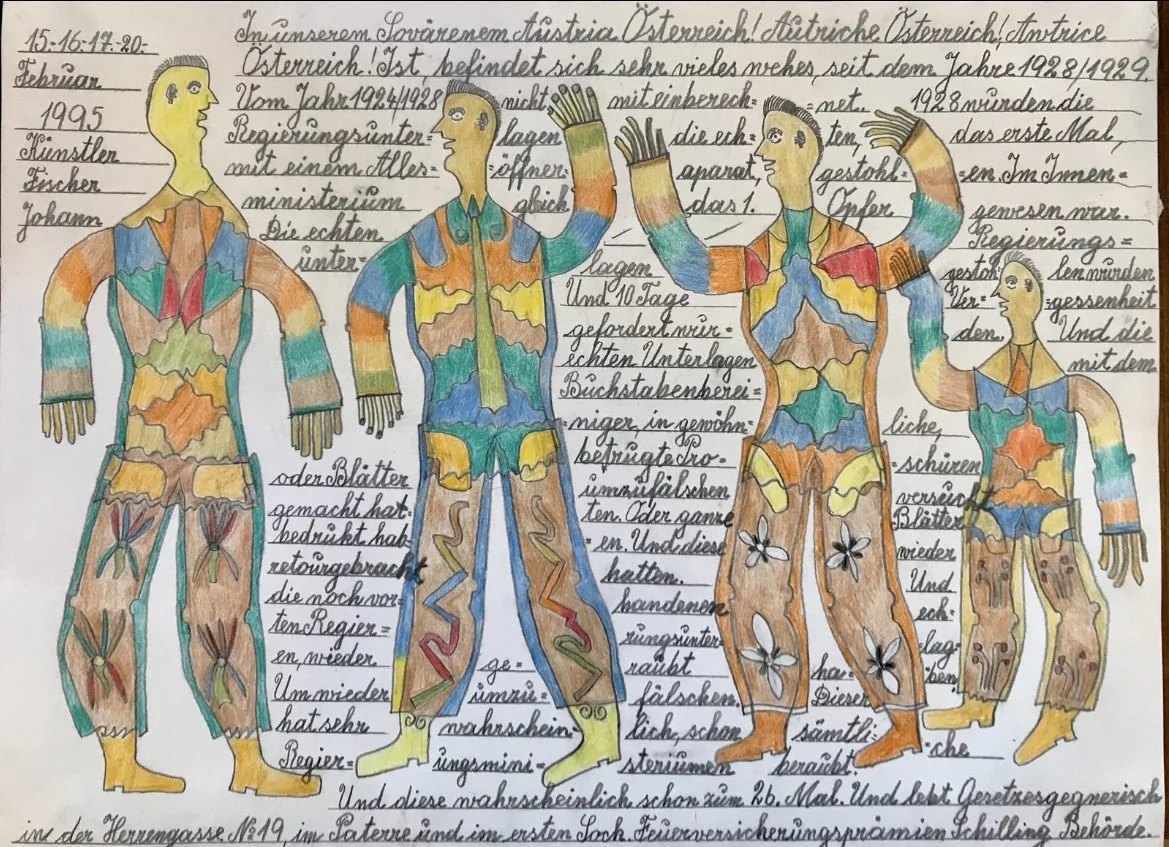 15.-16.-17.-20.-
Februar
1995
Künstler
Fischer
Johann
In unserem Sovärenem Austria Österreich! Autriche Österreich! Antrice
Österreich! Ist, befindet sich sehr vieles wehes, seit dem Jahre 1928/1929.
Vom Jahr 1924/1928 nicht miteinberech= =net. 1928 wurden die
Regierungsunter= lagen die ech= ten, das erste Mal,
mit einem Alles= =öffner= aparat, gestohl= =en. Im Innen=
ministerium gleich das 1. Opfer gewesen war.
Die echten Regierungs=
unter= lagen gestoh= len wurden
Und 10 Tage Ver= =gessenheit
gefordert wur= den. Und die
echten Unterlagen mit dem
Buchstabenberei=
=niger, in gewöhn= liche,
oder Blätter betrugte Pro= =schüren
gemacht hat= umzufälschen versucht
bedrukt hab= ten. Oder ganze Blätter
retourgebracht =en. Und diese wieder
die noch vor= hatten. Und
ten Regier= handenen ech=
en, wieder ge= rungsunter= lag=
Um wieder umzu= raubt ha= ben
hat sehr wahrschein= fälschen. Dieser
Regier= ungsmini= lich, schon sämtli= che
steriumen beraubt.
Und diese wahrscheinlich schon zum 26. Mal. Und lebt Gesetzesgegnerisch
in der Herrengasse No 19, im Paterre und im ersten Sock. Feuerversicherungsprämien Schilling Behörde.